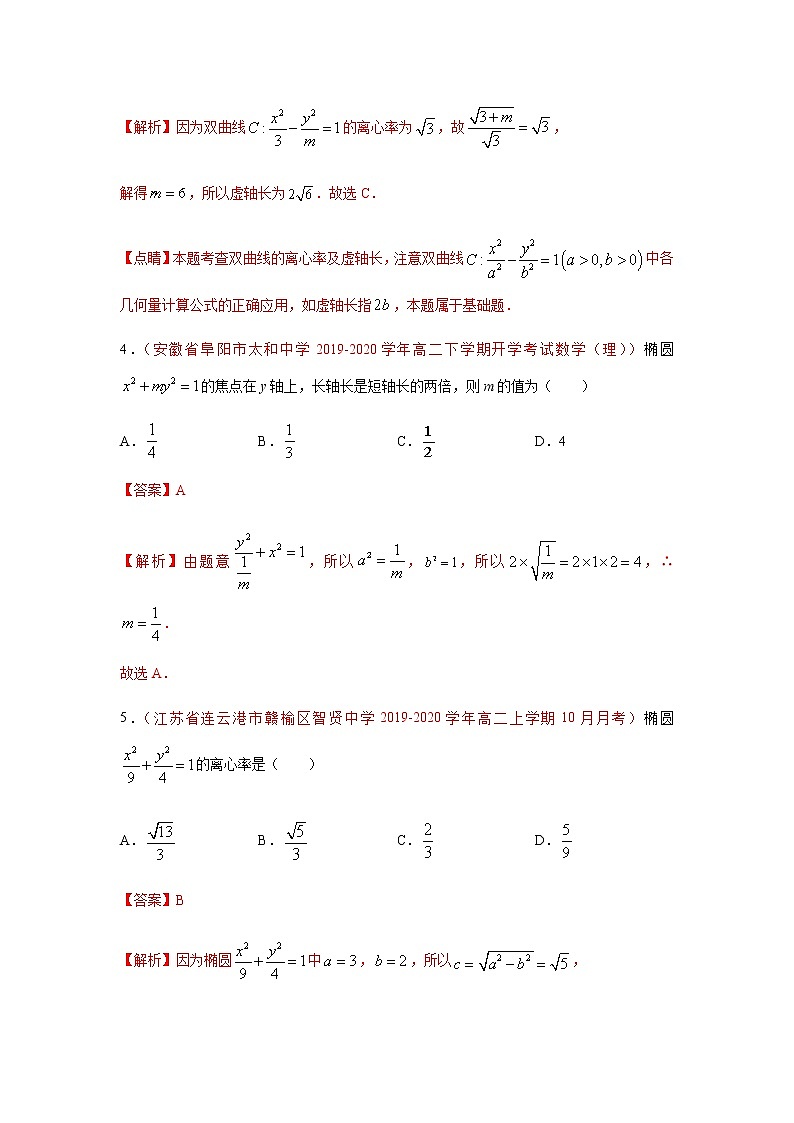 【解析】因为双曲线 $C:\frac{x^2}{3}-\frac{y^2}{m}=1$ 的离心率为 $\sqrt{3}$，故 $\frac{\sqrt{3+m}}{\sqrt{3}}=\sqrt{3}$，
解得 $m=6$，所以虚轴长为 $2\sqrt{6}$．故选 C．
【点睛】本题考查双曲线的离心率及虚轴长，注意双曲线 $C:\frac{x^2}{a^2}-\frac{y^2}{b^2}=1(a>0,b>0)$ 中各
几何量计算公式的正确应用，如虚轴长指 $2b$，本题属于基础题．
4．（安徽省阜阳市太和中学 2019-2020 学年高二下学期开学考试数学（理））椭圆
$x^2+my^2=1$ 的焦点在 y 轴上，长轴长是短轴长的两倍，则 m 的值为（　　）
A．$\frac{1}{4}$ B．$\frac{1}{3}$ C．$\frac{1}{2}$ D．4
【答案】A
【解析】由题意 $\frac{y^2}{\frac{1}{m}}+x^2=1$，所以 $a^2=\frac{1}{m}$，$b^2=1$，所以 $2\times\sqrt{\frac{1}{m}}=2\times1\times2=4$，∴
$m=\frac{1}{4}$．
故选 A．
5．（江苏省连云港市赣榆区智贤中学 2019-2020 学年高二上学期 10 月月考）椭圆
$\frac{x^2}{9}+\frac{y^2}{4}=1$ 的离心率是（　　）
A．$\frac{\sqrt{13}}{3}$ B．$\frac{\sqrt{5}}{3}$ C．$\frac{2}{3}$ D．$\frac{5}{9}$
【答案】B
【解析】因为椭圆 $\frac{x^2}{9}+\frac{y^2}{4}=1$ 中 $a=3$，$b=2$，所以 $c=\sqrt{a^2-b^2}=\sqrt{5}$，